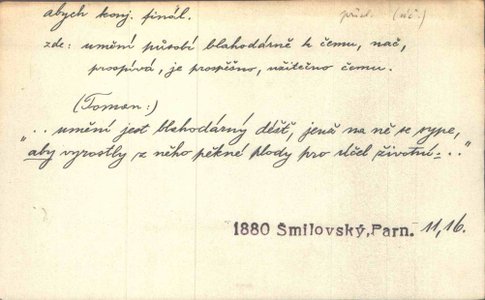 abych konj. finál.
zde: umění působí blahodárně k čemu, nač,
prospívá, je prospěšno, užitečno čemu.
(Toman:)
„.. umění jest blahodárný déšť, jenž na ně se sype,
aby vyrostly z něho pěkné plody pro účel životní..."
1880 Šmilovský, Parn. 11, 16.